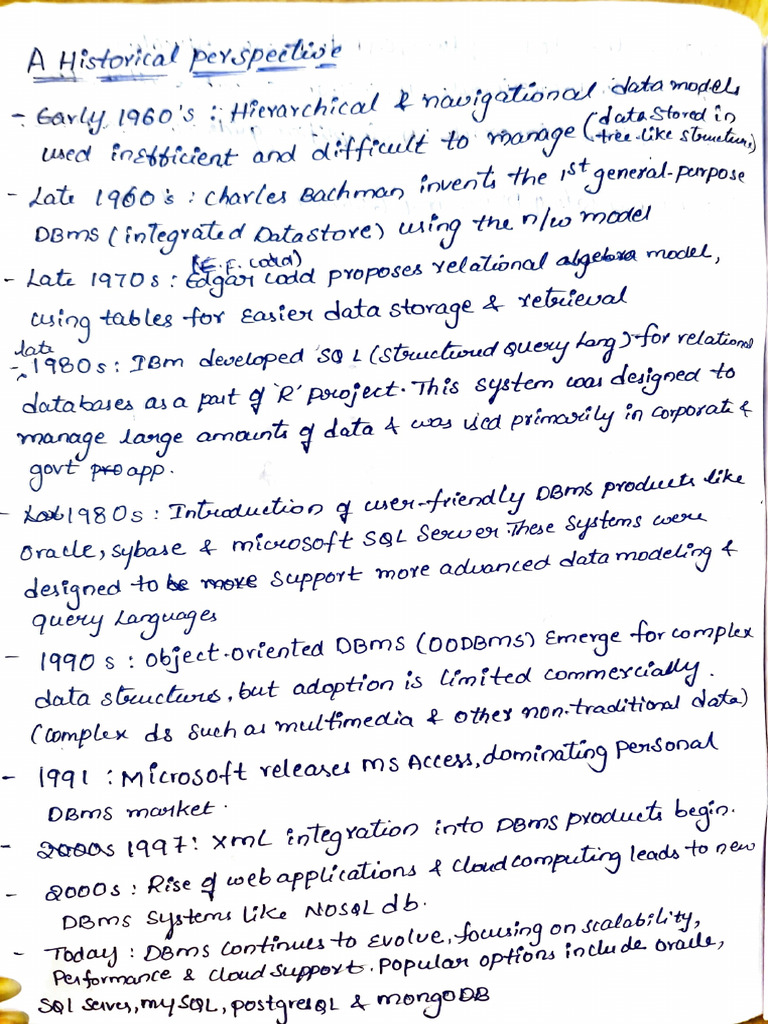 A Historical perspective
- Early 1960's : Hierarchical & navigational data models
used inefficient and difficult to manage (data stored in tree-like structures)
- Late 1960's : Charles Bachman invents the 1st general-purpose
DBMS (integrated Datastore) using the n/w model
(E.F. Codd)
- Late 1970s : Edgar Codd proposes relational algebra model,
using tables for easier data storage & retrieval
late
- 1980s : IBM developed SQL (Structured Query Lang) for relational
databases as a part of 'R' project. This system was designed to
manage large amounts of data & was used primarily in corporate &
govt pro app.
- Lat 1980s : Introduction of user-friendly DBMS products like
Oracle, Sybase & microsoft SQL Server. These systems were
designed to be more support more advanced data modeling &
query languages
- 1990s : Object-oriented DBMS (OODBMS) Emerge for complex
data structures, but adoption is limited commercially.
(complex ds such as multimedia & other non-traditional data)
- 1991 : Microsoft releases MS Access, dominating Personal
DBMS market.
- 2000s 1997: XML integration into DBMS products begin.
- 2000s : Rise of web applications & cloud computing leads to new
DBMS systems like NoSQL db.
- Today : DBMS continues to Evolve, focusing on scalability,
Performance & cloud support. Popular options include Oracle,
SQL Server, mySQL, postgreSQL & mongoDB